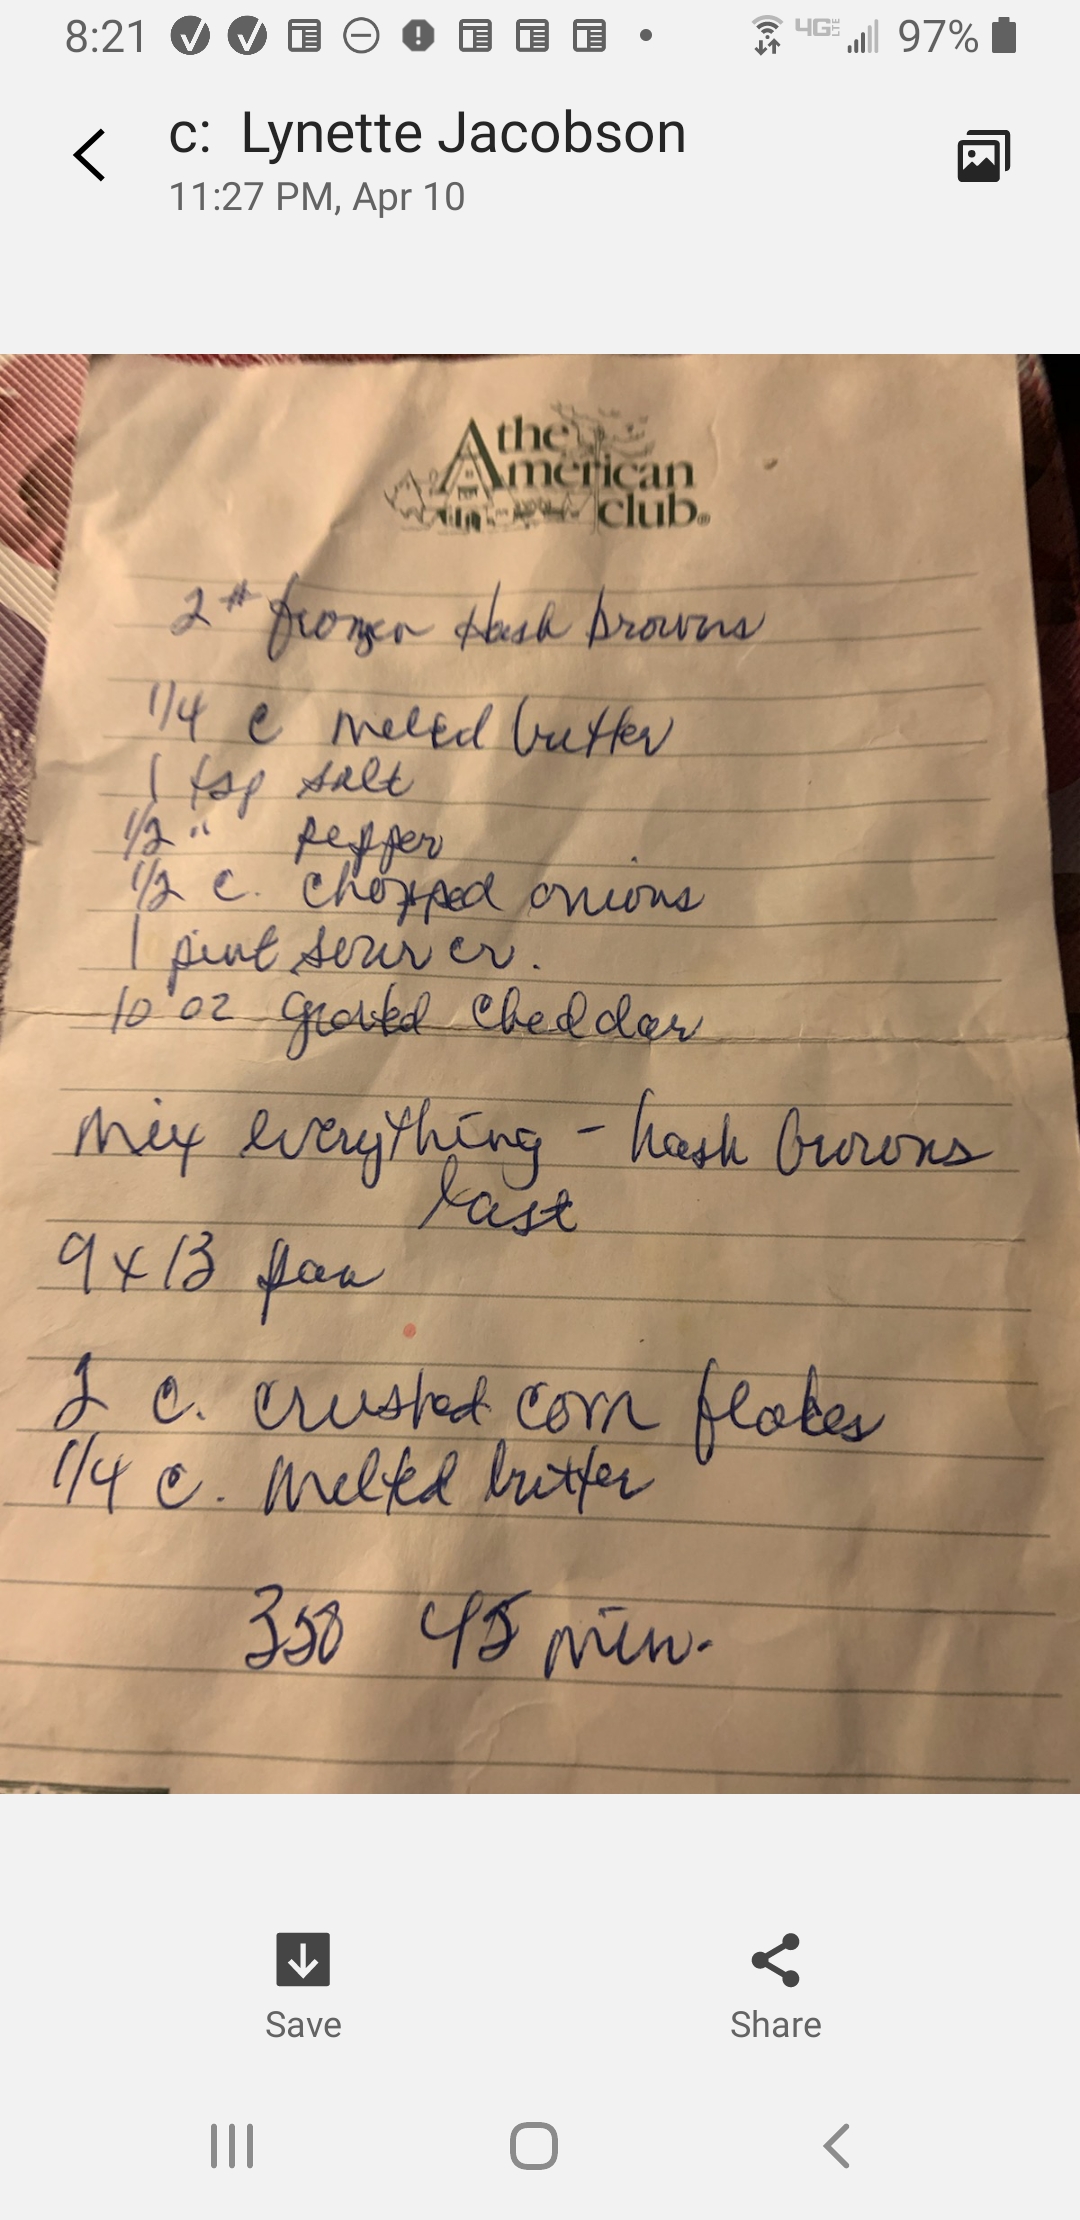 8:21 4G LTE 97%
c: Lynette Jacobson
11:27 PM, Apr 10
the
American
club®
2# frozen Hash browns
1/4 c melted butter
1 tsp salt
1/2 " pepper
1/2 c. chopped onions
1 pint sour cr.
10 oz grated cheddar
Mix everything - hash browns
last
9x13 pan
2 c. crushed corn flakes
1/4 c. melted butter
350 45 min.
Save
Share